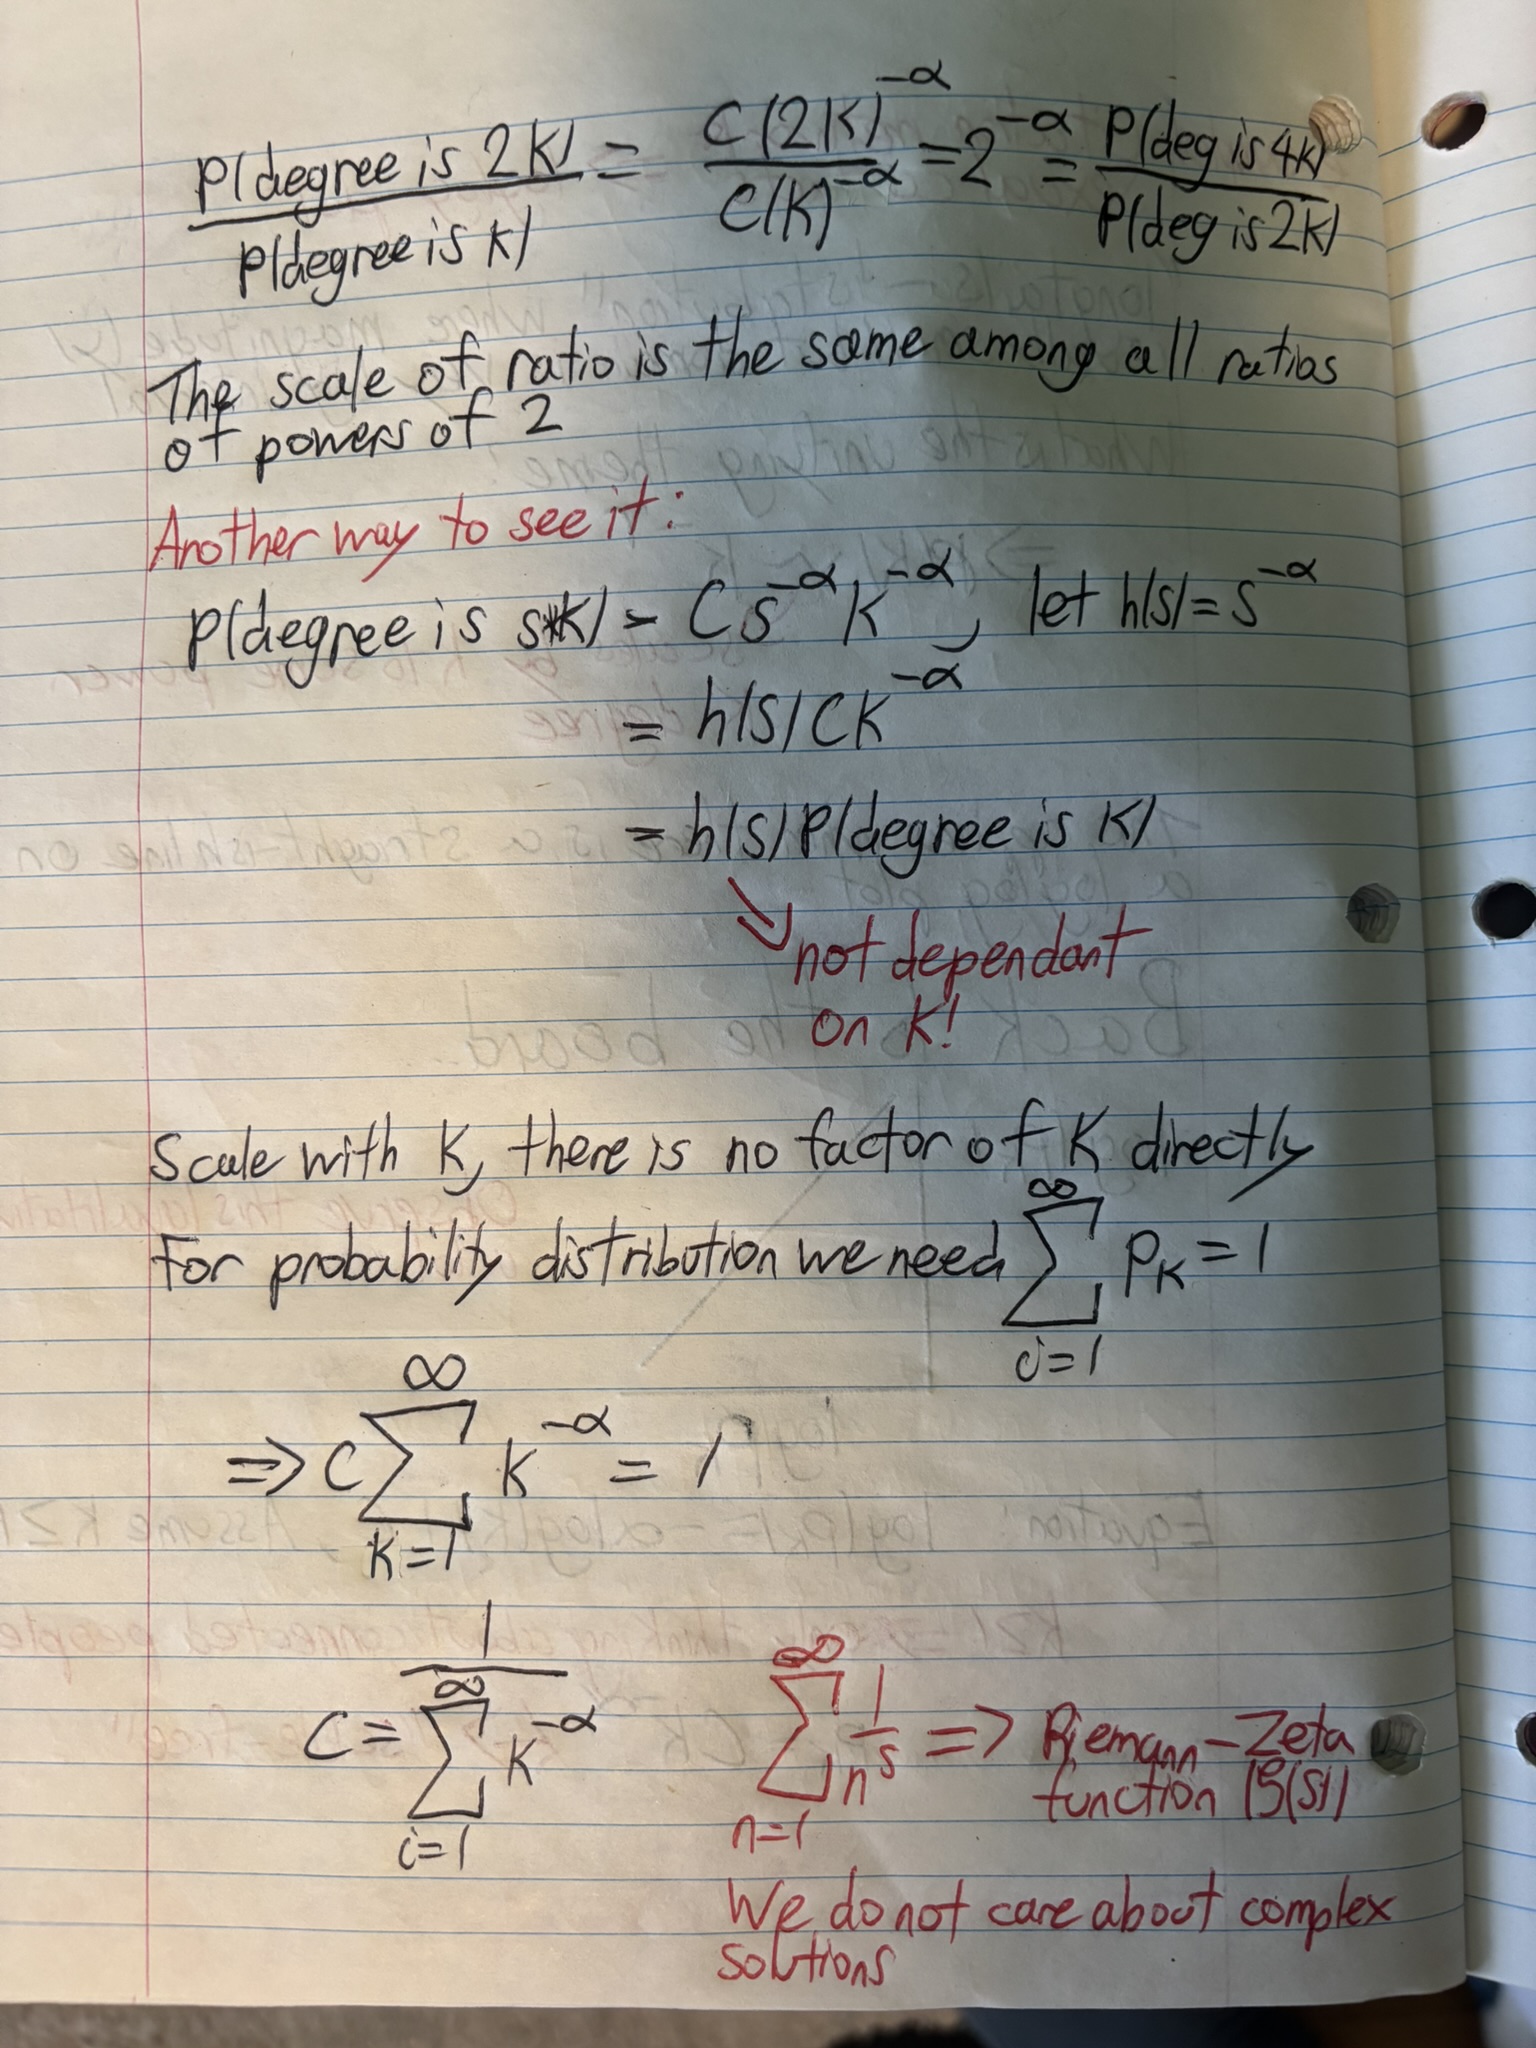 P(degree is 2K) / P(degree is K) = C(2K)^-α / C(K)^-α = 2^-α = P(deg is 4K) / P(deg is 2K)
The scale of ratio is the same among all ratios
of powers of 2
Another way to see it:
P(degree is s*K) = C s^-α K^-α, let h(s) = s^-α
= h(s) C K^-α
= h(s) P(degree is K)
not dependant
on K!
Scale with K, there is no factor of K directly
For probability distribution we need ∑_{i=1}^{∞} P_K = 1
⇒ C ∑_{K=1}^{∞} K^-α = 1
C = 1 / ∑_{i=1}^{∞} K^-α
∑_{n=1}^{∞} 1/n^s ⇒ Riemann-Zeta
function (ζ(s))
We do not care about complex
solutions